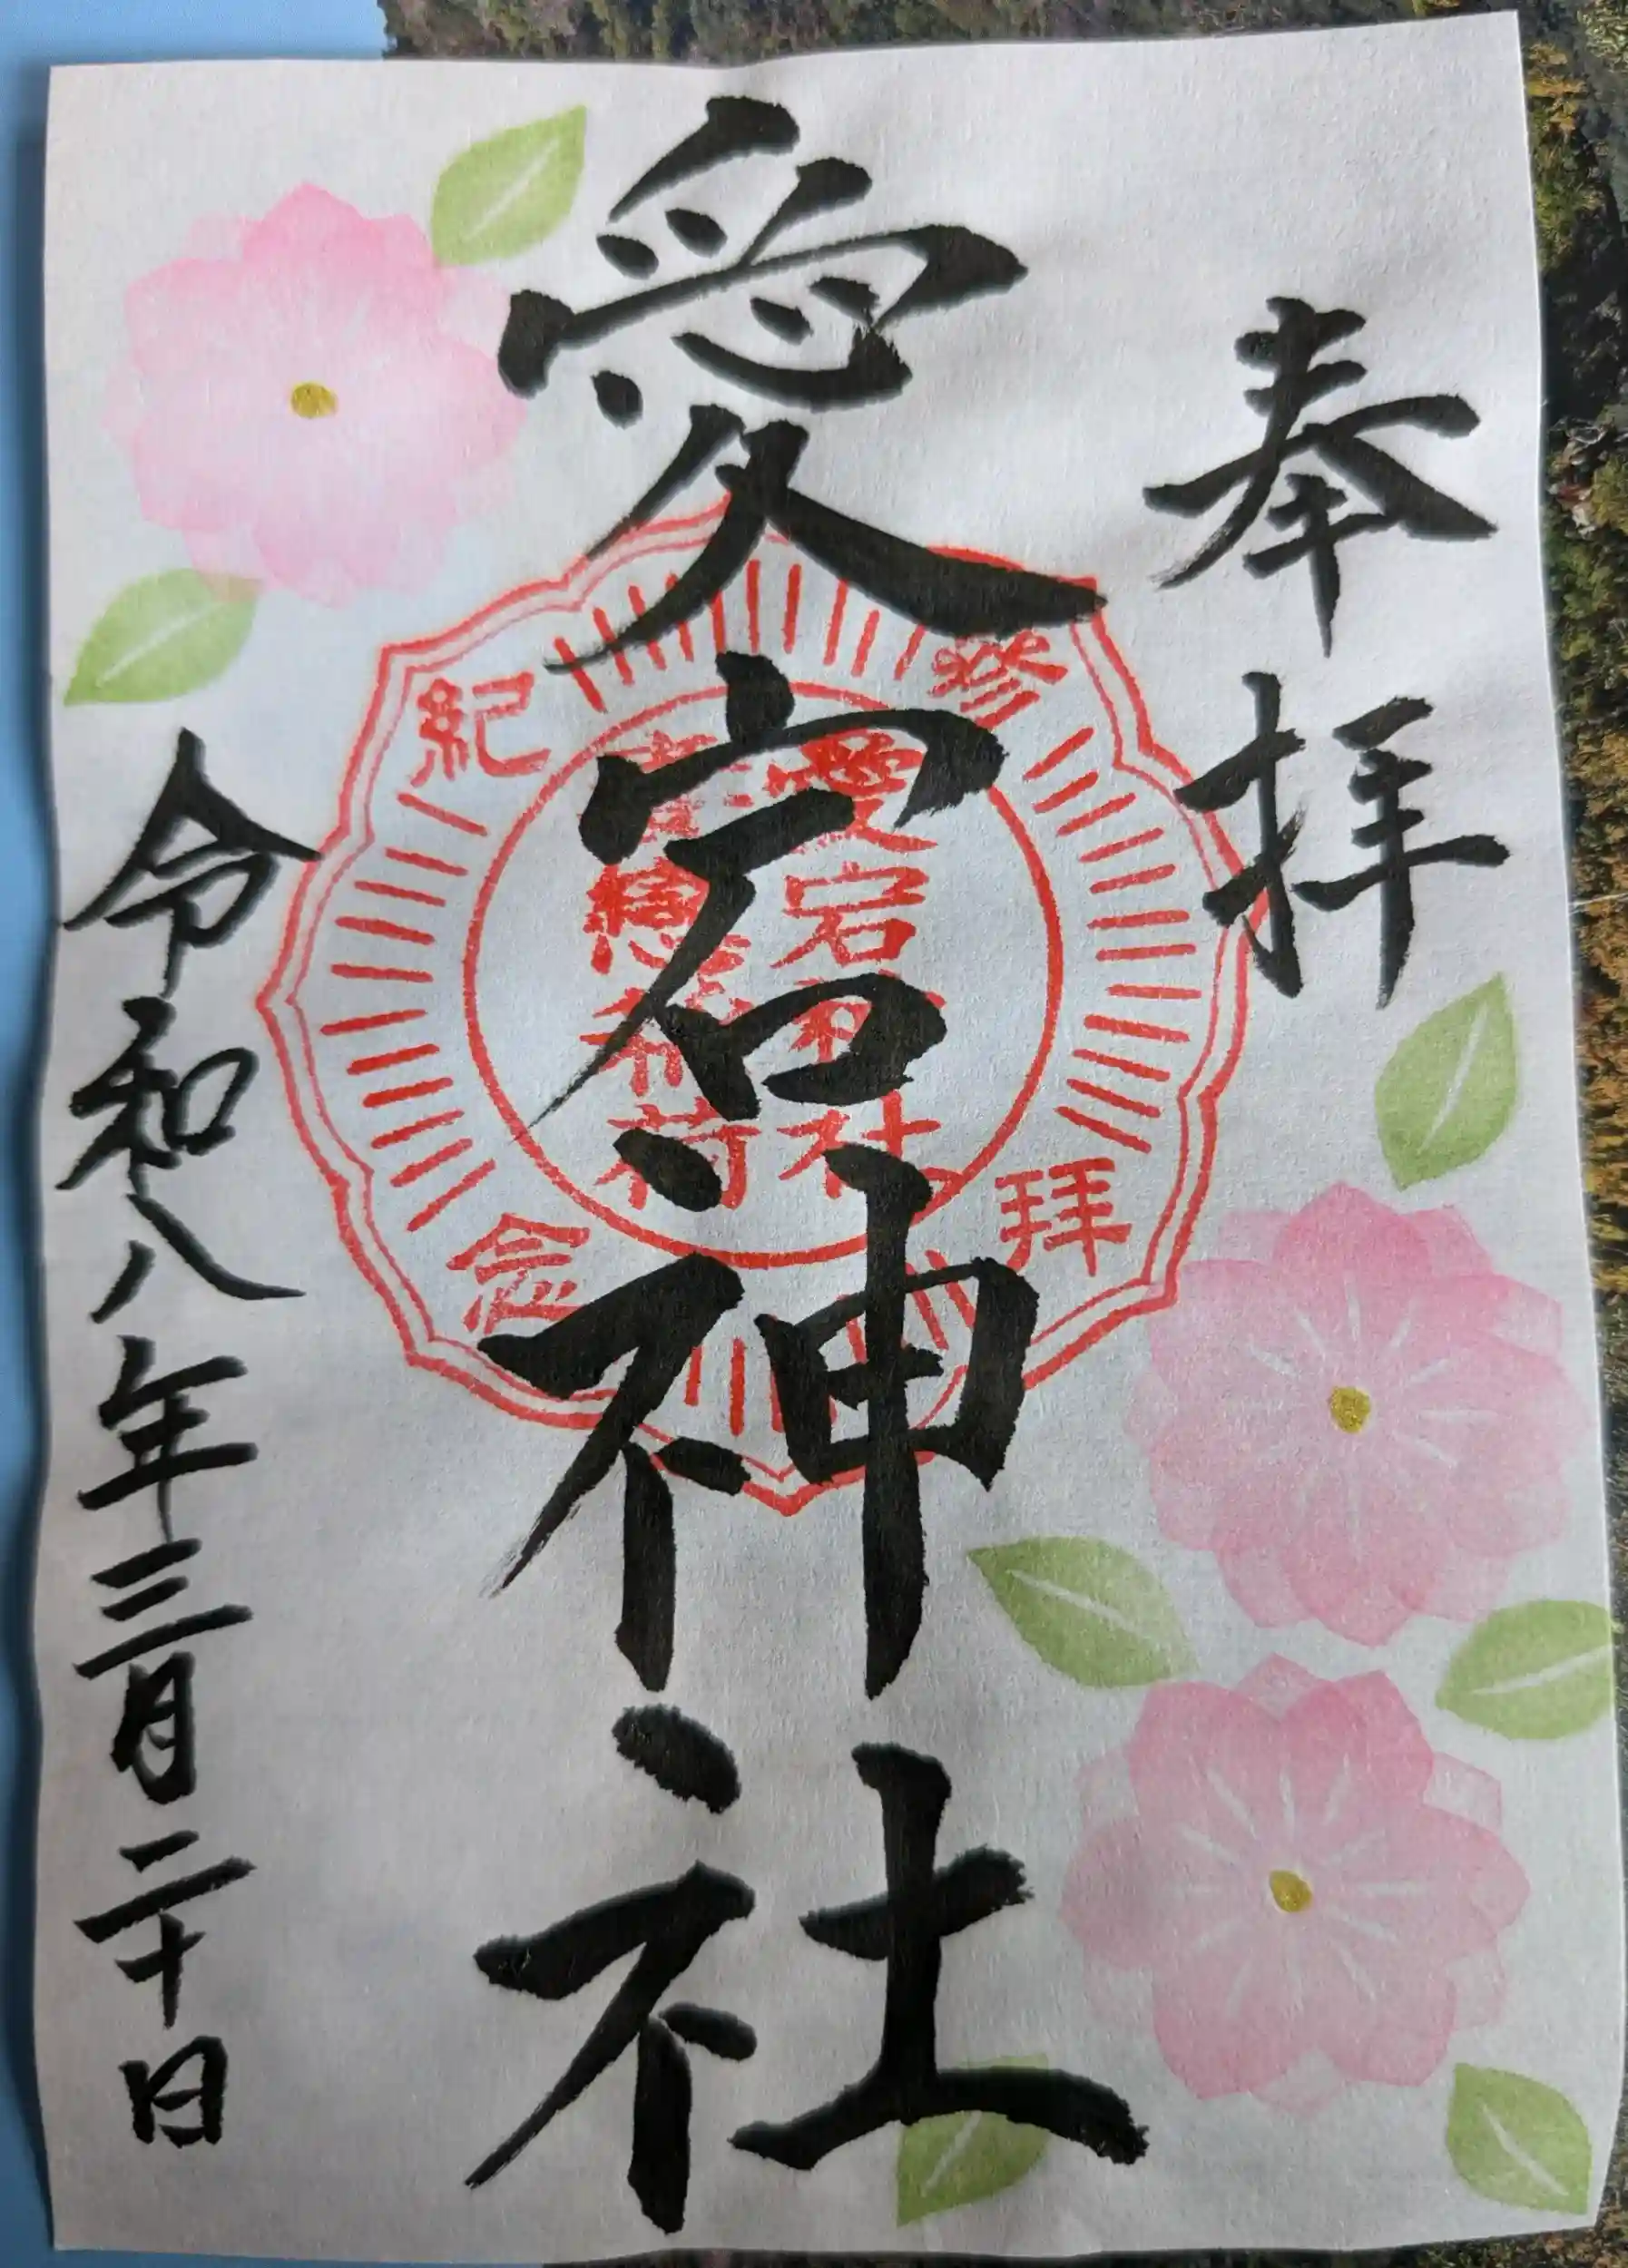 奉拝
愛宕神社
令和八年三月二十日
参拝
紀念
愛宕神社
荷